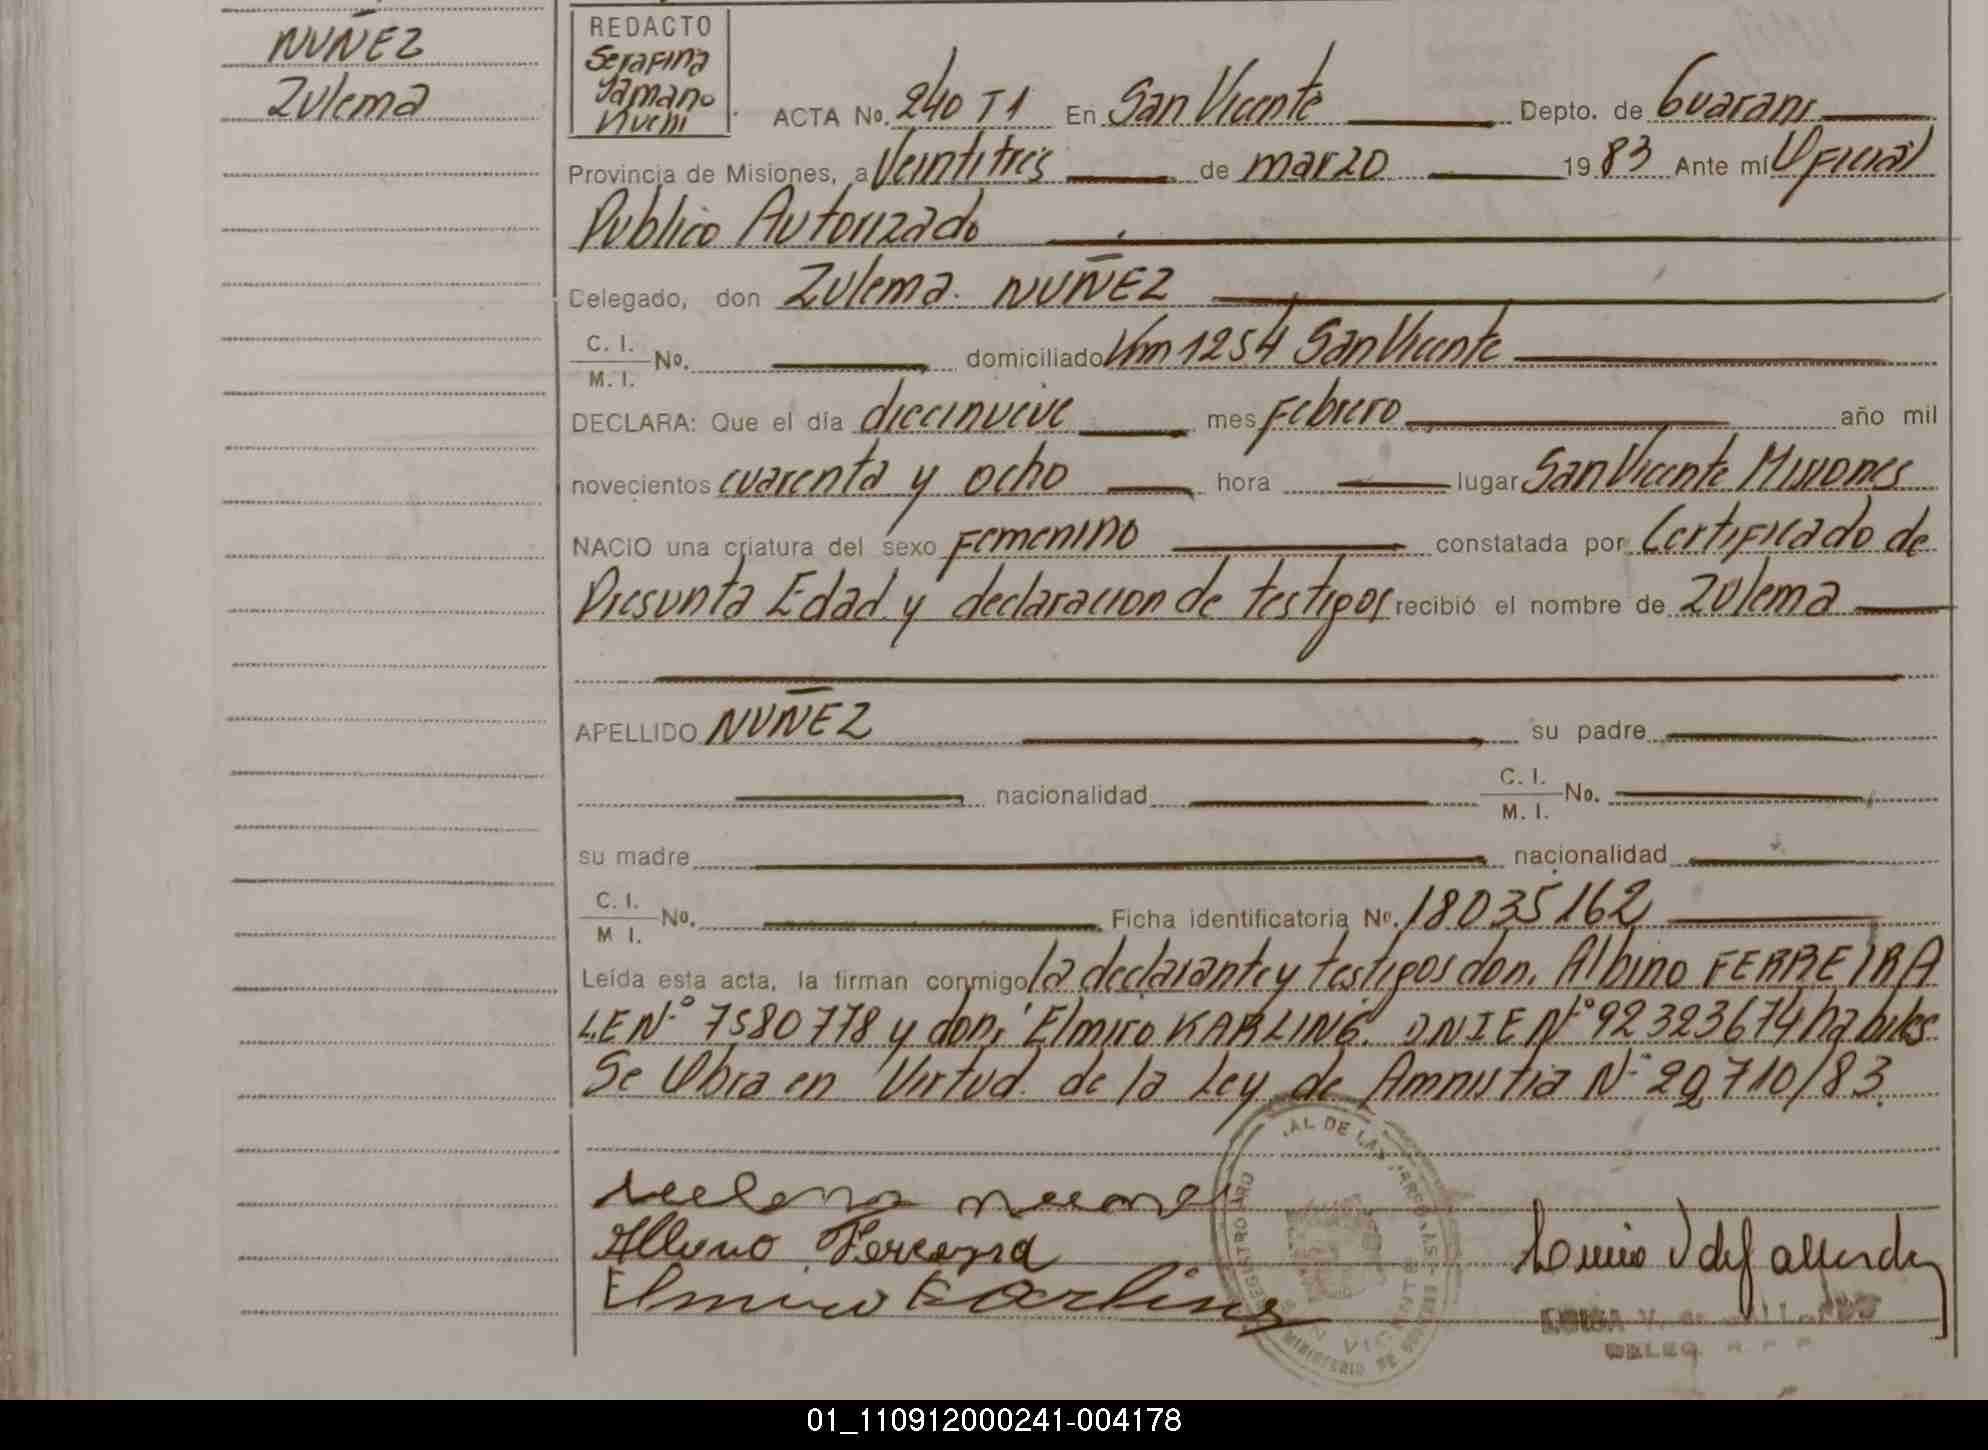 NUÑEZ
Zulema
REDACTO
Serafina
Yamano
ACTA No. 240 T1 En San Vicente Depto. de Guarani
Provincia de Misiones, a Veintitres de marzo 1983 Ante mí Oficial
Publico Autorizado
Delegado, don Zulema NUÑEZ
C. I.
M. I. No. domiciliado Km 1254 San Vicente
DECLARA: Que el día diecinueve mes Febrero año mil
novecientos cuarenta y ocho hora lugar San Vicente Misiones
NACIO una criatura del sexo Femenino constatada por Certificado de
Presunta Edad y declaracion de testigos recibió el nombre de Zulema
APELLIDO NUÑEZ su padre
nacionalidad C. I.
M. I. No.
su madre nacionalidad
C. I.
M I. No. Ficha identificatoria No. 18035162
Leída esta acta, la firman conmigo la declarante y testigos don, Albino FERREIRA
L.E Nº 7580778 y don, Elmiro KARLING. D.N.I E Nº 92323674 habiles
Se Obra en Virtud de la Ley de Amnistia Nº 22710/83.
Elmiro Karling
REGISTRO
AL DE LAS PERSONAS
SAN VICENTE
MINISTERIO DE GOBIERNO
DELEG.
01_110912000241-004178